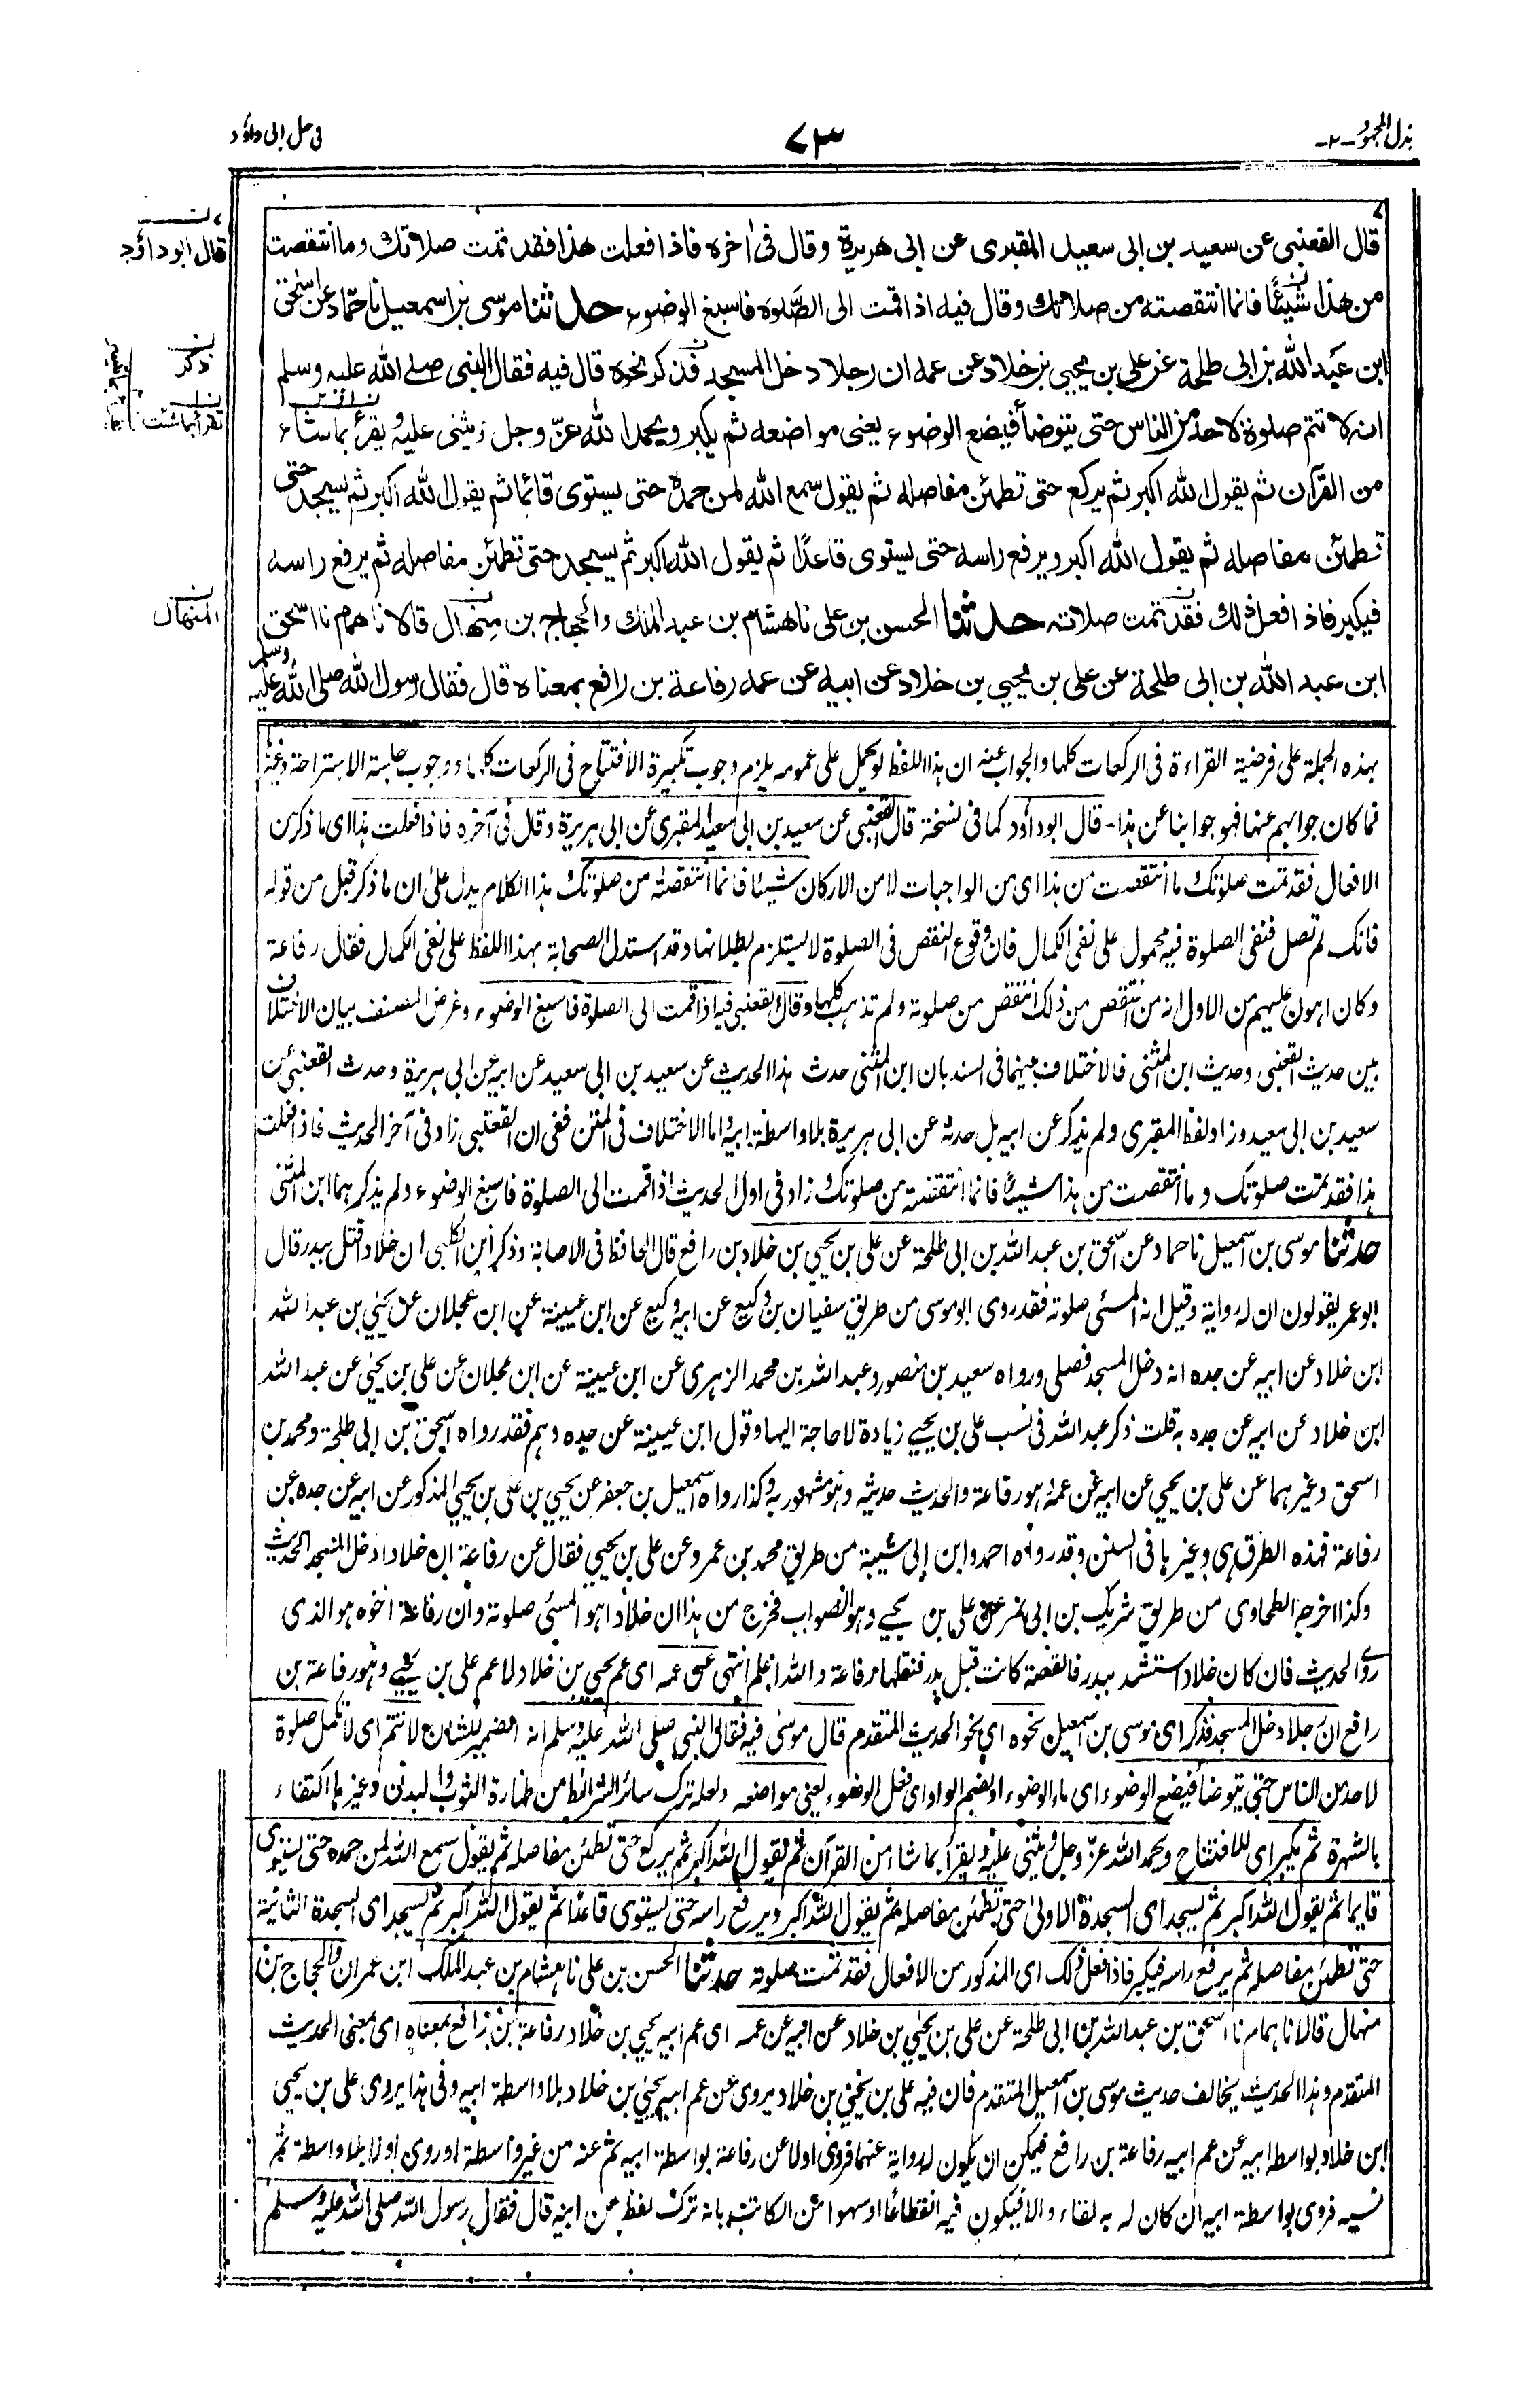 بذل المجهود -٢-
٧٣
فى حل ابى داؤد
قال ابو داؤد
قال القعنبى عن سعيد بن ابى سعيد المقبرى عن ابى هريرة وقال فى اٰخره فاذا فعلت هذا فقد تمت صلاتك وما انتقصت
من هذا شيئًا فانما انتقصته من صلاتك وقال فيه اذا قمت الى الصلوة فاسبغ الوضوء حدثنا موسى بن اسمعيل نا حماد عن اسحق
ذكر
ابن عبد الله بن ابى طلحة عن على بن يحيى بن خلاد عن عمه ان رجلا دخل المسجد فذكر نحوه قال فيه فقال النبى صلے الله عليه وسلم
تقرأ بما شئت
انه لا تتم صلوة لاحد من الناس حتى يتوضأ فيضع الوضوء يعنى مواضعه ثم يكبر ويحمد الله عزّ وجل ويثنى عليه ويقرأ بما شاء
من القرآن ثم يقول الله اكبر ثم يركع حتى تطمئن مفاصله ثم يقول سمع الله لمن حمده حتى يستوى قائما ثم يقول الله اكبر ثم يسجد حتى
تطمئن مفاصله ثم يقول الله اكبر ويرفع راسه حتى يستوى قاعدًا ثم يقول الله اكبر ثم يسجد حتى تطمئن مفاصله ثم يرفع راسه
المنهال
فيكبر فاذا فعل ذلك فقد تمت صلاته حدثنا الحسن بن على نا هشام بن عبد الملك والحجاج بن منهال قالا نا همام نا اسحق
ابن عبد الله بن ابى طلحة عن على بن يحيى بن خلاد عن ابيه عن عمه رفاعة بن رافع بمعناه قال فقال رسول الله صلى الله عليه وسلم
بهذه الجملة على فرضية القراءة فى الركعات كلها والجواب عنه ان هذا اللفظ لو يحمل على عمومه يلزم وجوب تكبيرة الافتتاح فى الركعات كلها ووجوب جلسة الاستراحة وغيره
فما كان جوابهم عنها فهو جوابنا عن هذا - قال ابو داؤد كما فى نسخة قال القعنبى عن سعيد بن ابى سعيد المقبرى عن ابى هريرة وقال فى آخره فاذا فعلت هذا اى ما ذكر من
الافعال فقد تمت صلوتك ما انتقصت من هذا اى من الواجبات لا من الاركان شيئًا فانما انتقصته من صلوتك هذا الكلام يدل على ان ما ذكر قبل من قوله
فانك لم تصل فنفى الصلوة فيه محمول على نفى الكمال فان وقوع النقص فى الصلوة لا يستلزم بطلانها وقد استدل الصحابة بهذا اللفظ على نفى الكمال فقال رفاعة
وكان اهون عليهم من الاول انه من انتقص من ذلك انتقص من صلوته ولم تذهب كلها وقال القعنبى فيه اذا قمت الى الصلوة فاسبغ الوضوء وغرض المصنف بيان الاختلاف
بين حديث القعنبى وحديث ابن المثنى فالاختلاف بينهما فى السند بان ابن المثنى حدث هذا الحديث عن سعيد بن ابى سعيد عن ابيه عن ابى هريرة وحدث القعنبى عن
سعيد بن ابى سعيد وزاد لفظ المقبرى ولم يذكر عن ابيه بل حدثه عن ابى هريرة بلا واسطة ابيه واما الاختلاف فى المتن ففى ان القعنبى زاد فى آخر الحديث فاذا فعلت
هذا فقد تمت صلوتك وما انتقصت من هذا شيئًا فانما انتقصته من صلوتك وزاد فى اول الحديث اذا قمت الى الصلوة فاسبغ الوضوء ولم يذكرهما ابن المثنى
حدثنا موسى بن اسمعيل نا حماد عن اسحق بن عبد الله بن ابى طلحة عن على بن يحيى بن خلاد بن رافع قال الحافظ فى الاصابة وذكر ابن الكلبى ان خلادا قتل ببدر قال
ابو عمر يقولون ان له رواية وقيل انه المسئى صلوته فقد روى ابو موسى من طريق سفيان بن وكيع عن ابيه وكيع عن ابن عيينة عن ابن عجلان عن يحيى بن عبد الله
ابن خلاد عن ابيه عن جده انه دخل المسجد فصلى ورواه سعيد بن منصور وعبد الله بن محمد الزهرى عن ابن عيينة عن ابن عجلان عن على بن يحيى عن عبد الله
ابن خلاد عن ابيه عن جده به قلت ذكر عبد الله فى نسب على بن يحيے زيادة لا حاجة اليها وقول ابن عيينة عن جده وهم فقد رواه اسحق بن ابى طلحة ومحمد بن
اسحق وغيرهما عن على بن يحيى عن ابيه عن عمه وهو رفاعة والحديث حديثه وهو مشهور به وكذا رواه اسمعيل بن جعفر عن يحيى بن على بن يحيى المذكور عن ابيه عن جده عن
رفاعة فهذه الطرق هى وغيرها فى السنن وقد رواه احمد وابن ابى شيبة من طريق محمد بن عمرو عن على بن يحيى فقال عن رفاعة ان خلادا دخل المسجد الحديث
وكذا اخرجه الطحاوى من طريق شريك بن ابى نمر عن على بن يحيے وهو الصواب فخرج من هذا ان خلادا هو المسئى صلوته وان رفاعة اخوه هو الذى
روى الحديث فان كان خلاد استشهد ببدر فالقصة كانت قبل بدر فنقلها رفاعة والله اعلم انتهى عن عمه اى عم يحيى بن خلاد لا عم على بن يحيے وهو رفاعة بن
رافع ان رجلا دخل المسجد فذكر اى موسى بن اسمعيل نحوه اى نحو الحديث المتقدم قال موسى فيه فقال النبى صلى الله عليه وسلم انه الضمير للشان لا تتم اى لا تكمل صلوة
لاحد من الناس حتى يتوضأ فيضع الوضوء اى ماء الوضوء او بضم الواو اى فعل الوضوء يعنى مواضعه ولعله ترك سائر الشرائط من طهارة الثوب والبدن وغيرها اكتفاء
بالشهرة ثم يكبر اى للافتتاح ويحمد الله عزّ وجل ويثنى عليه ويقرأ بما شاء من القرآن ثم يقول الله اكبر ثم يركع حتى تطمئن مفاصله ثم يقول سمع الله لمن حمده حتى يستوى
قايما ثم يقول الله اكبر ثم يسجد اى السجدة الاولىٰ حتى تطمئن مفاصله ثم يقول الله اكبر ويرفع راسه حتى يستوى قاعدا ثم يقول الله اكبر ثم يسجد اى السجدة الثانية
حتى تطمئن مفاصله ثم يرفع راسه فيكبر فاذا فعل ذلك اى المذكور من الافعال فقد تمت صلوته حدثنا الحسن بن على نا هشام بن عبد الملك ابن عمران والحجاج بن
منهال قالا نا همام نا اسحق بن عبد الله بن ابى طلحة عن على بن يحيى بن خلاد عن ابيه عن عمه اى عم ابيه يحيى بن خلاد رفاعة بن رافع بمعناه اى معنى الحديث
المتقدم وهذا الحديث يخالف حديث موسى بن اسمعيل المتقدم فان فيه على بن يحيى بن خلاد يروى عن عم ابيه يحيى بن خلاد بلا واسطة ابيه وفى هذا يروى على بن يحيى
ابن خلاد بواسطة ابيه عن عم ابيه رفاعة بن رافع فيمكن ان يكون له رواية عنهما فروى اولا عن رفاعة بواسطة ابيه ثم عنه من غير واسطة او روى اولا بلا واسطة ثم
نسيه فروى بواسطة ابيه ان كان له به لقاء والا فيكون فيه انقطاعًا او سهوا من الكاتب بانه ترك لفظ عن ابيه قال فقال رسول الله صلى الله عليه وسلم